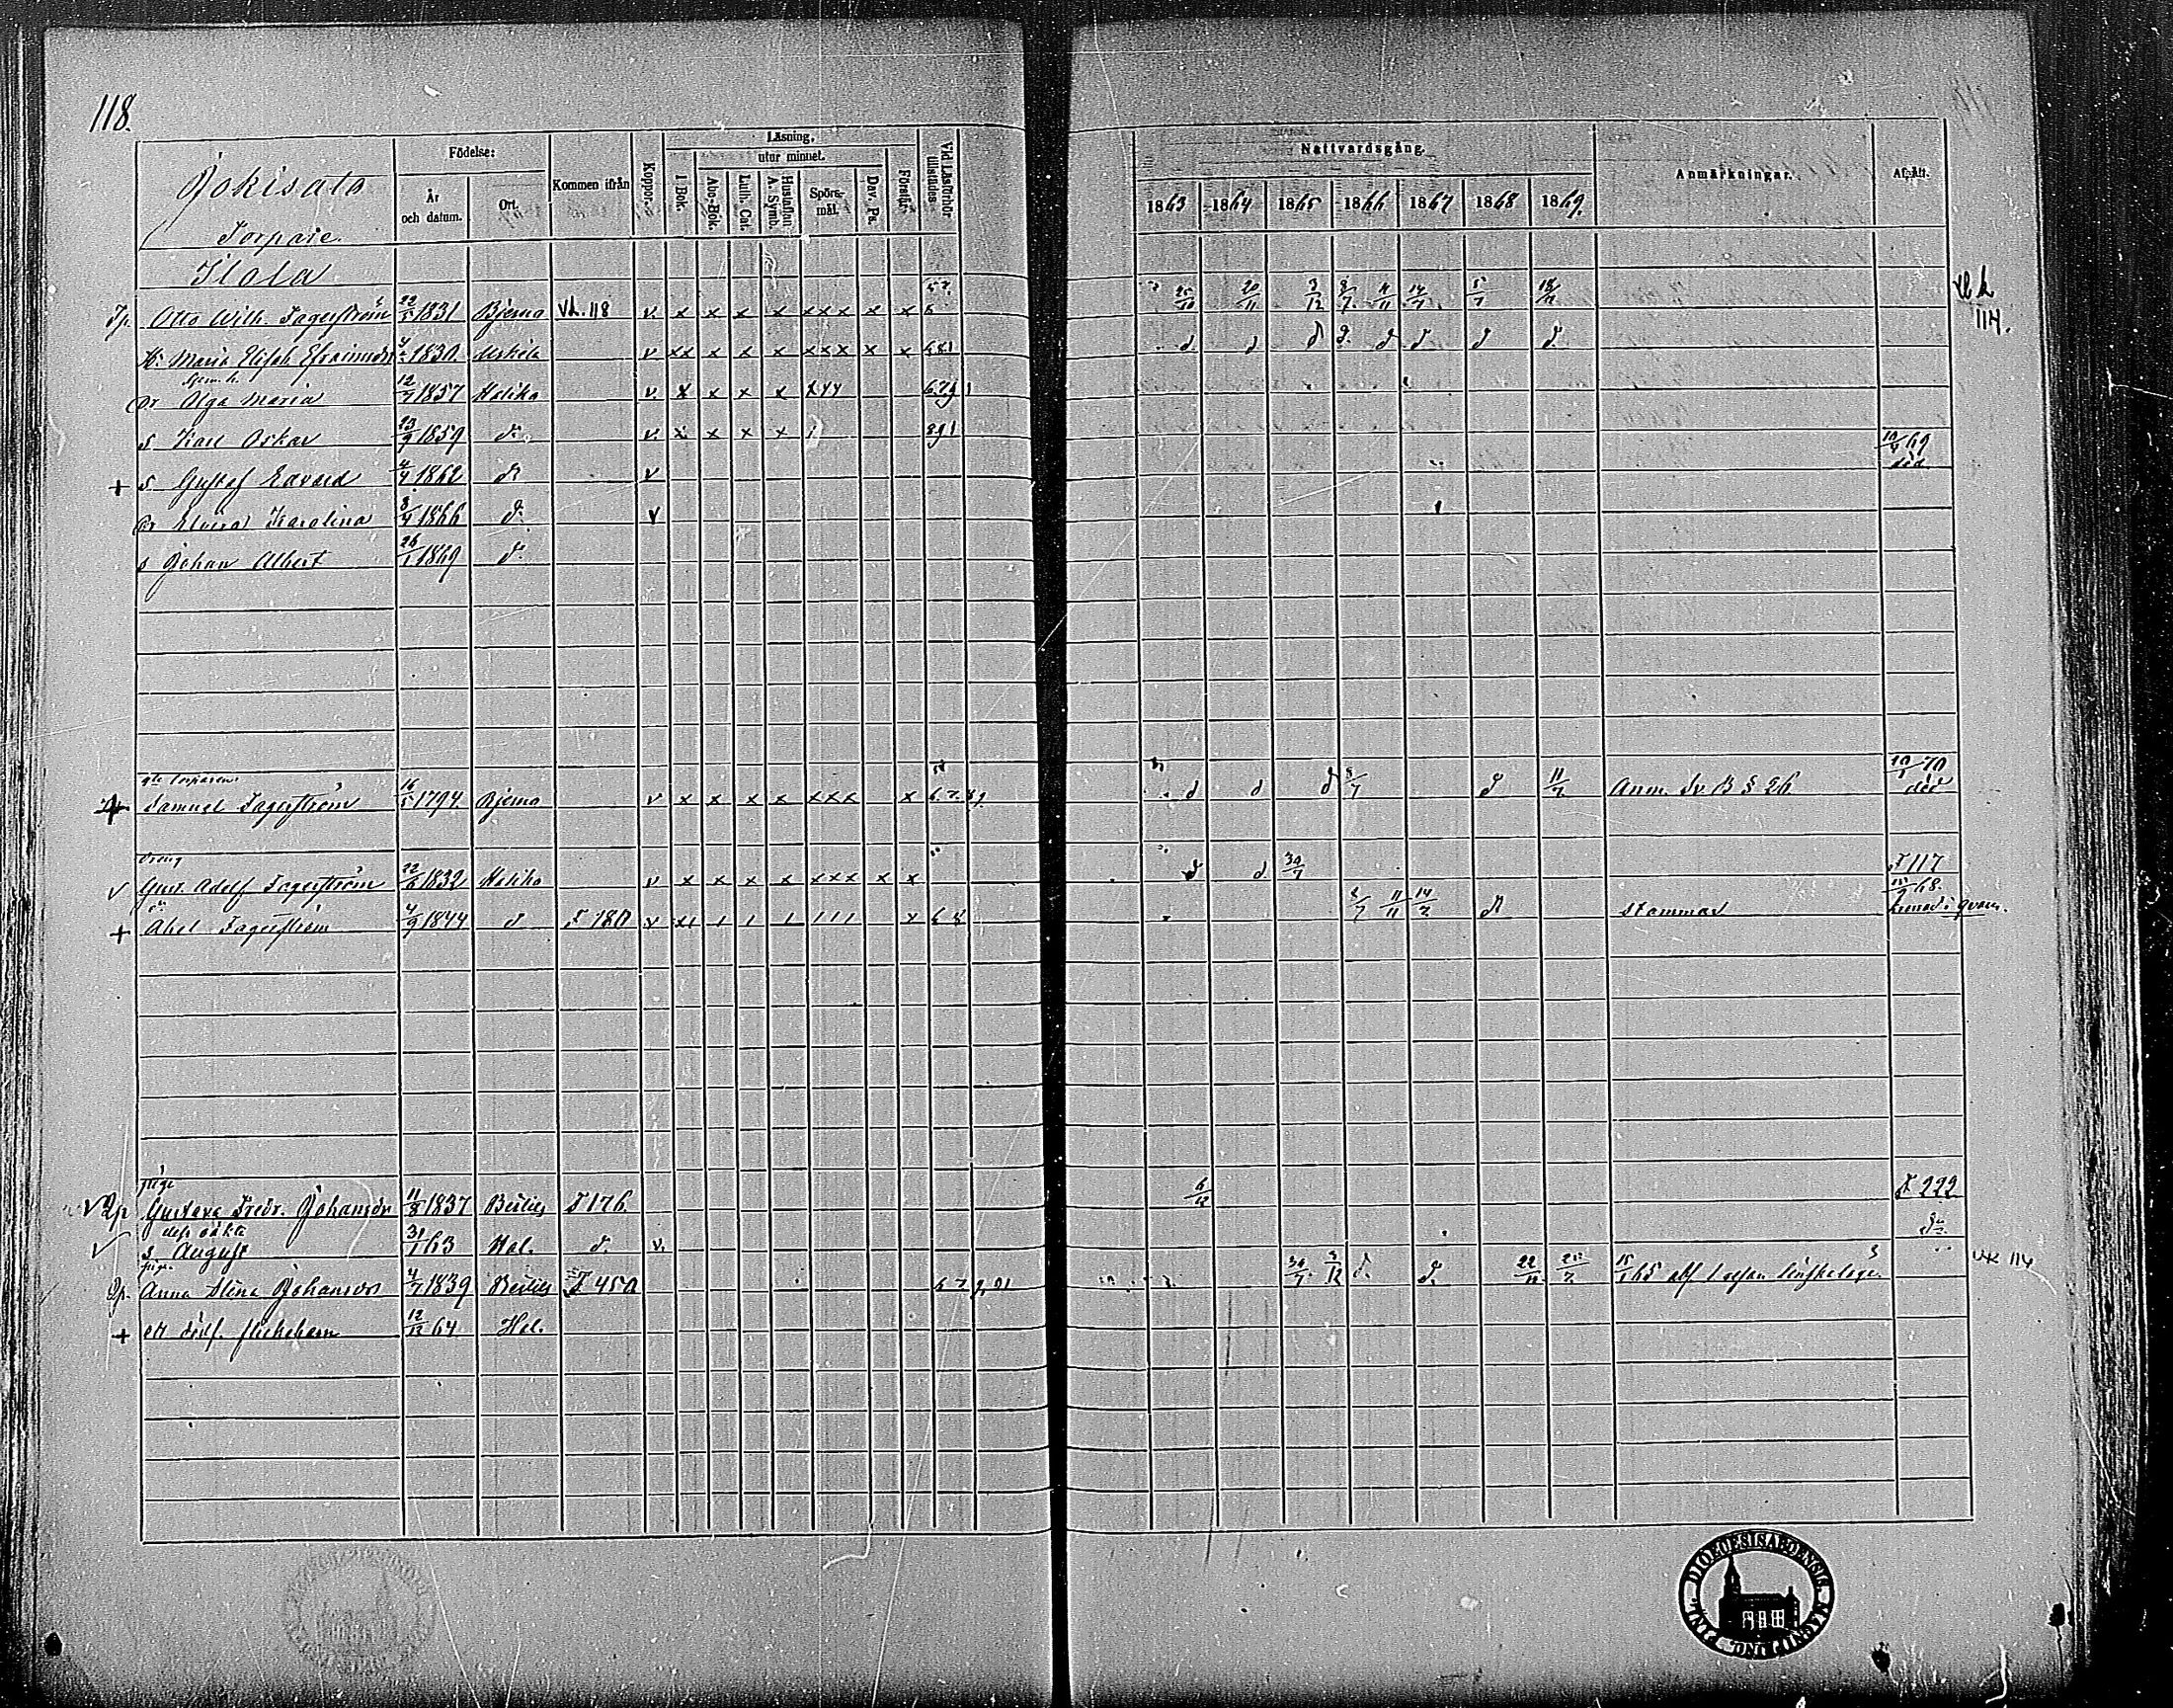 118.
Jokisato
Torpare.
Ilola
Födelse:
År och datum.
Ort.
Kommen ifrån
Koppor.
Läsning.
I Bok.
utur minnet.
Abc-Bok.
Luth. Cat.
Hustaflan A. Symb.
Spörs-mål.
Dav. Ps.
Förstår.
Vid Läsförhör tillstädes
Nattvardsgång.
1863 1864 1865 1866 1867 1868 1869.
Anmärkningar.
Afgått.
Tp. Otto Wilh. Fagerström 22/5 1831 Bjerno Vk. 118 v x x x x xxx x x 25/10 20/11 3/12 8/7 11/11 14/7 5/7 18/7
114.
H. Maria Elisab. Efraimsdr 1830 Uskela v xx x x x xxx x x 681 d d d d. d d d d
Dr Olga Maria 12/7 1857 Haliko v. x x x x
s Karl Oskar 23/9 1859 d:o v. x x x x 891
+ s Gustaf Edvard 4/4 1862 d:o v 10/4 69 död
Dr Elvira Karolina 8/4 1866 d:o v
s Johan Albert 26/1 1869 d:o
+ Samuel Fagerström 16/5 1794 Bjerno v x x x x xxx x 6. 7. 89 d d d 8/7 d 11/7 Anm. Sv. B § 26 10/1 70 död
dräng
v Gust. Adolf Fagerström 22/6 1832 Haliko v x x x x xxx x x d d 30/7 T 117
+ Abel Fagerström 4/9 1844 d T 180 v 1 1 1 111 x 6 8 8/7 11/11 14/7 d stammar 68.
piga
v Gustava Fredr. Johansdr 11/8 1837 T 176 6/12 T 222
dess oäkta
v s August 31/1 63 Hal. d. v. d:o
piga
Anna Stina Johansdr 4/7 1839 T 450 30/7 3/12 d. d. 22/12 25/7 15/1 65
114
+ ett dödf. flickebarn 12/12 64 Hal.
DIOECESIS ABOENSIS MAGNI DUC. FINL.